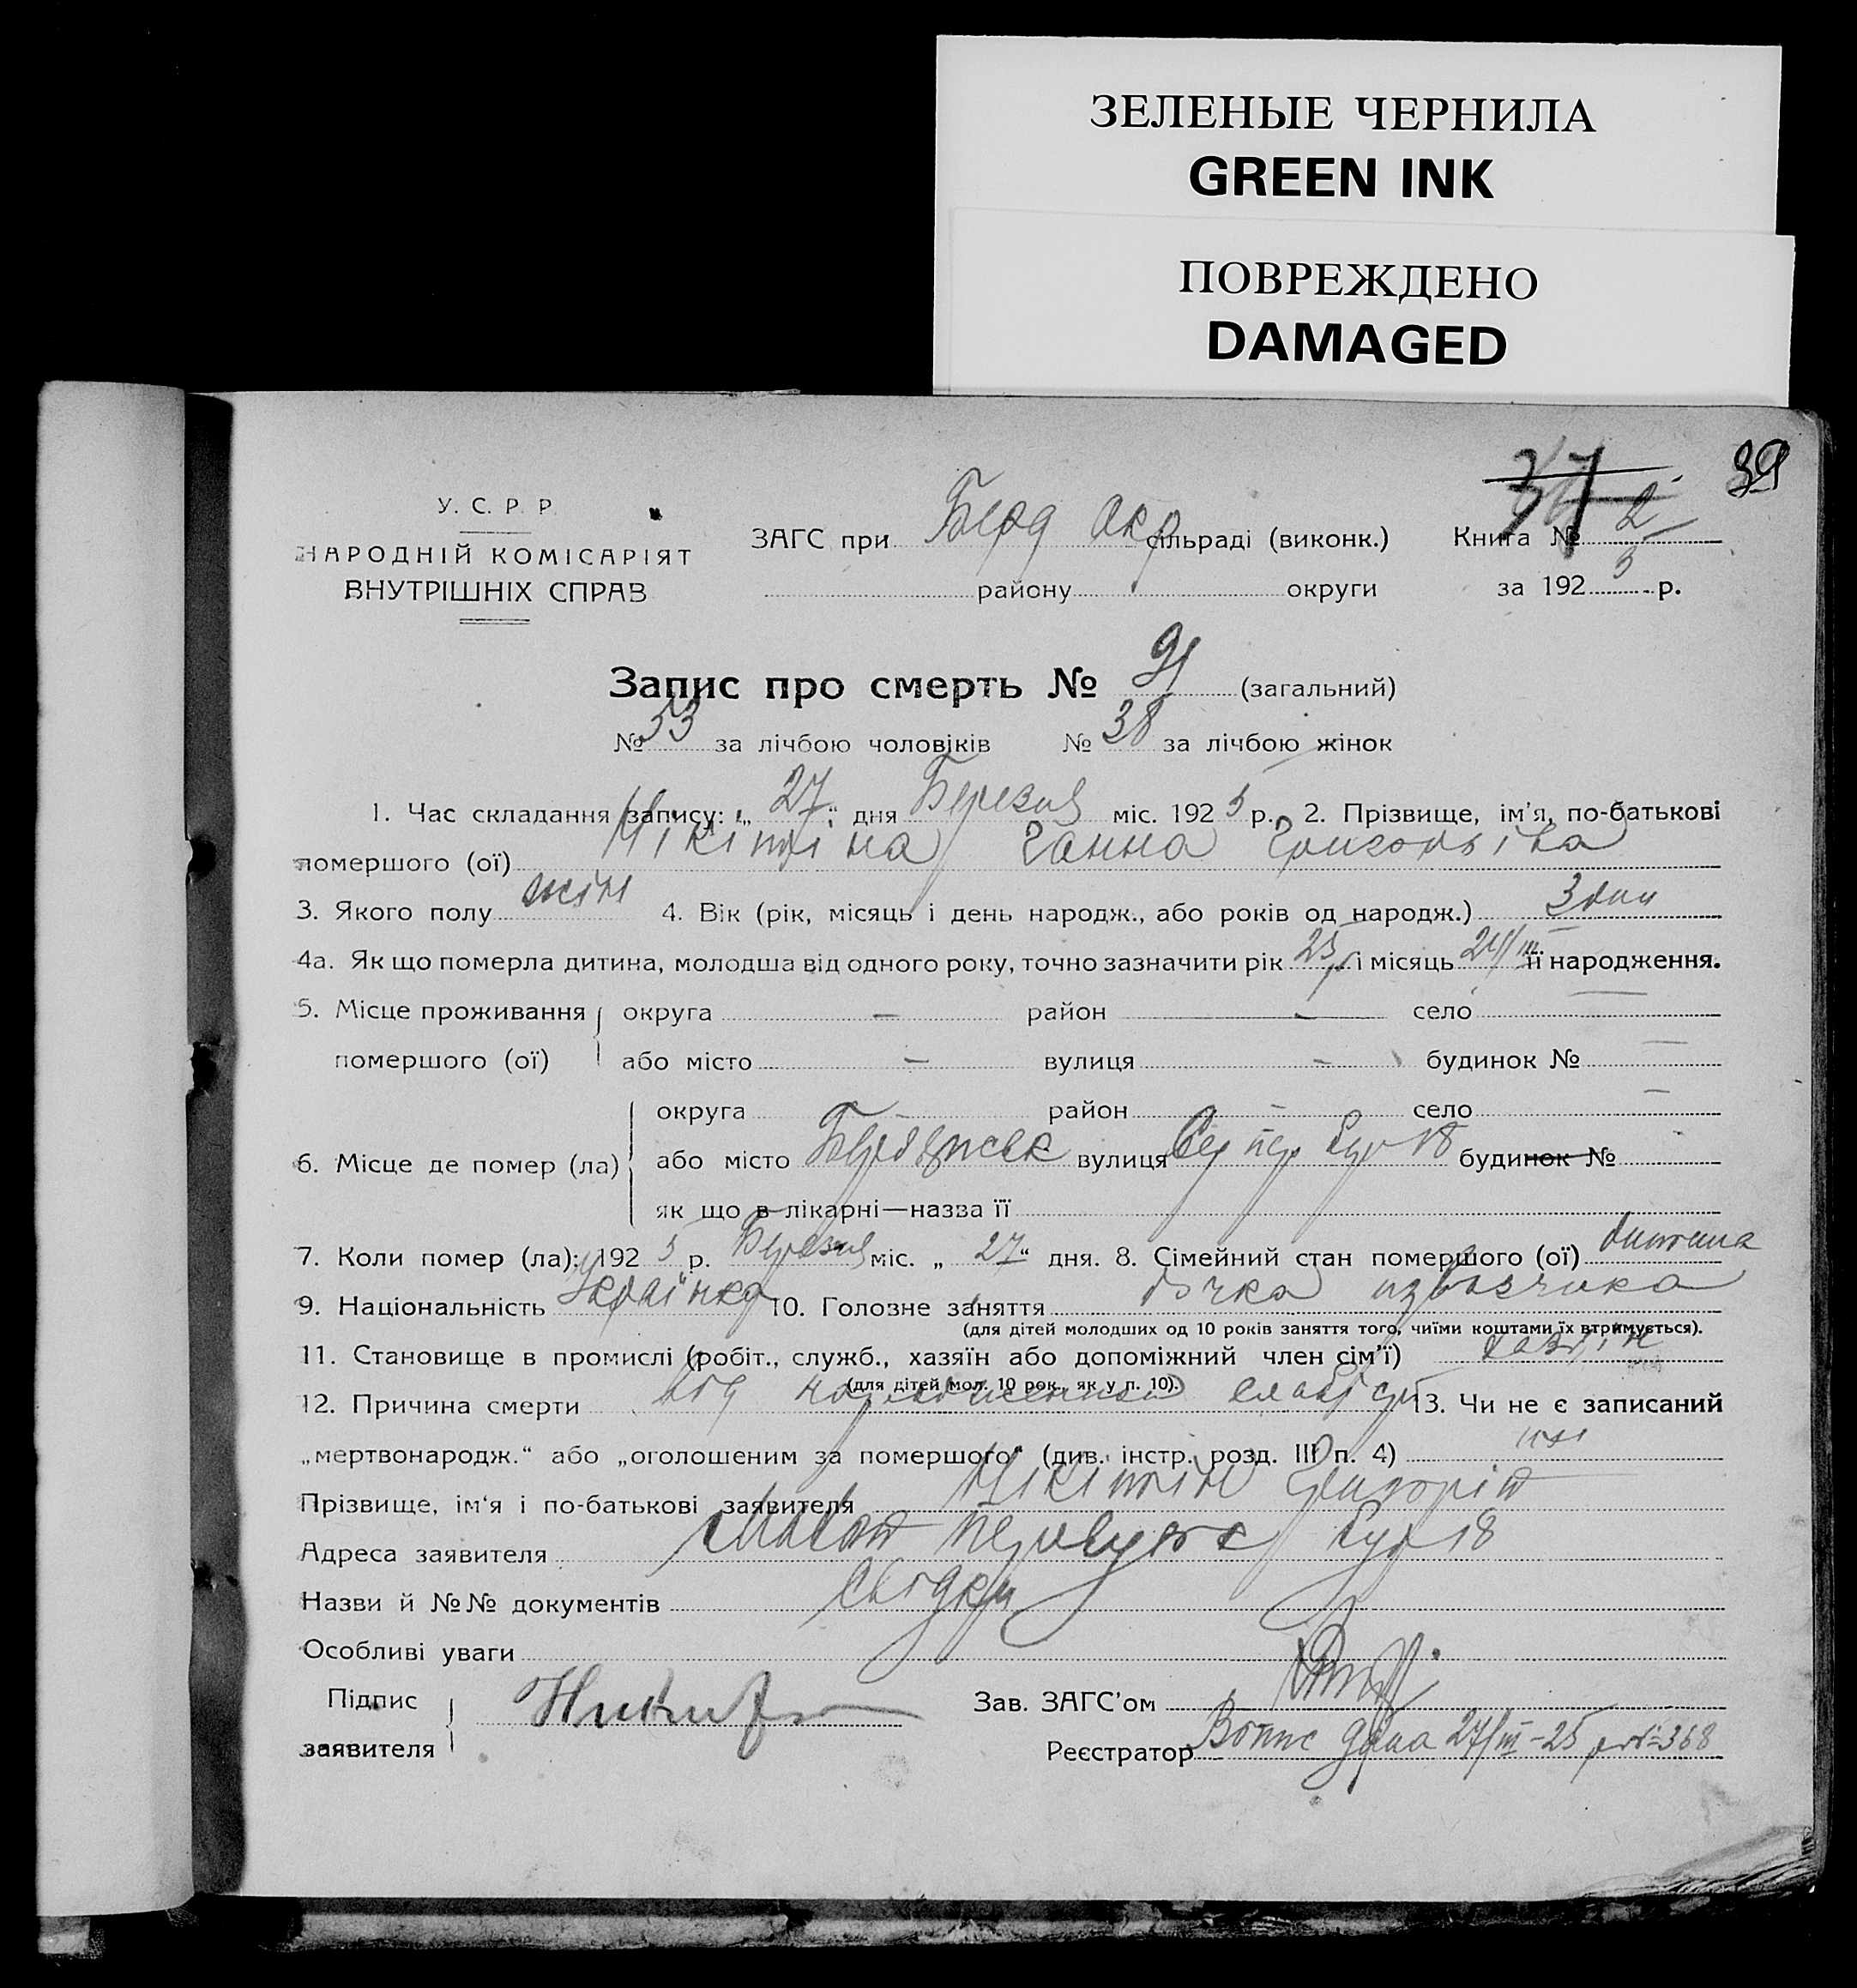 ЗЕЛЕНЫЕ ЧЕРНИЛА
GREEN INK
ПОВРЕЖДЕНО
DAMAGED
37 39
У. С. Р. Р.
НАРОДНІЙ КОМІСАРІЯТ
ВНУТРІШНІХ СПРАВ
ЗАГС при Берд Окр сільраді (виконк.) Книга № 2
району округи за 1925 р.
Запис про смерть № 91 (загальний)
№ 53 за лічбою чоловіків № 38 за лічбою жінок
1. Час складання запису: „27“ дня Березня міс. 1925 р. 2. Прізвище, ім'я, по-батькові
помершого (ої) Нікітіна Ганна Григорьівна
3. Якого полу жін 4. Вік (рік, місяць і день народж., або років од народж.) 3 дни
4а. Як що померла дитина, молодша від одного року, точно зазначити рік 25 р і місяць 24/III її народження.
5. Місце проживання округа — район — село —
помершого (ої) або місто — вулиця — будинок № —
округа — район — село —
6. Місце де помер (ла) або місто Бердянськ вулиця пер буд 18 будинок №
як що в лікарні—назва її
7. Коли помер (ла): 1925 р. Березня міс. „27“ дня. 8. Сімейний стан помершого (ої) дитина
9. Національність Українка 10. Головне заняття дочка извозчика
(для дітей молодших од 10 років заняття того, чиїми коштами їх втримується).
11. Становище в промислі (робіт., служб., хазяїн або допоміжний член сім'ї) хазяїн
(для дітей мол. 10 рок., як у п. 10).
12. Причина смерти від слабості 13. Чи не є записаний
„мертвонародж.“ або „оголошеним за помершого“ (див. інстр. розд. III п. 4) ні
Прізвище, ім'я і по-батькові заявителя Нікітін Григорій
Адреса заявителя переулок буд 18
Назви й №№ документів свідки
Особливі уваги
Підпис
заявителя Никити
Зав. ЗАГС'ом
Реєстратор Випис дана 27/III-25 р № 368